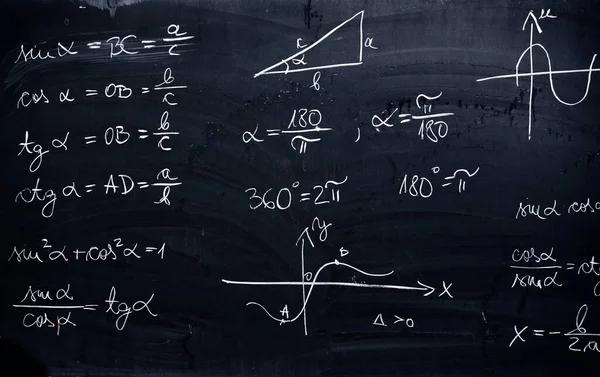 sin α = BC = a/c
cos α = OB = b/c
tg α = OB = b/c
ctg α = AD = a/b
sin²α + cos²α = 1
sin α/cos α = tg α
c a
α
b
α = 180/π , α = π/180
360° = 2π 180° = π
y
B
0
X
A
Δ >0
u
sin α cos α
cos α/sin α = ctg
X = - b/2a